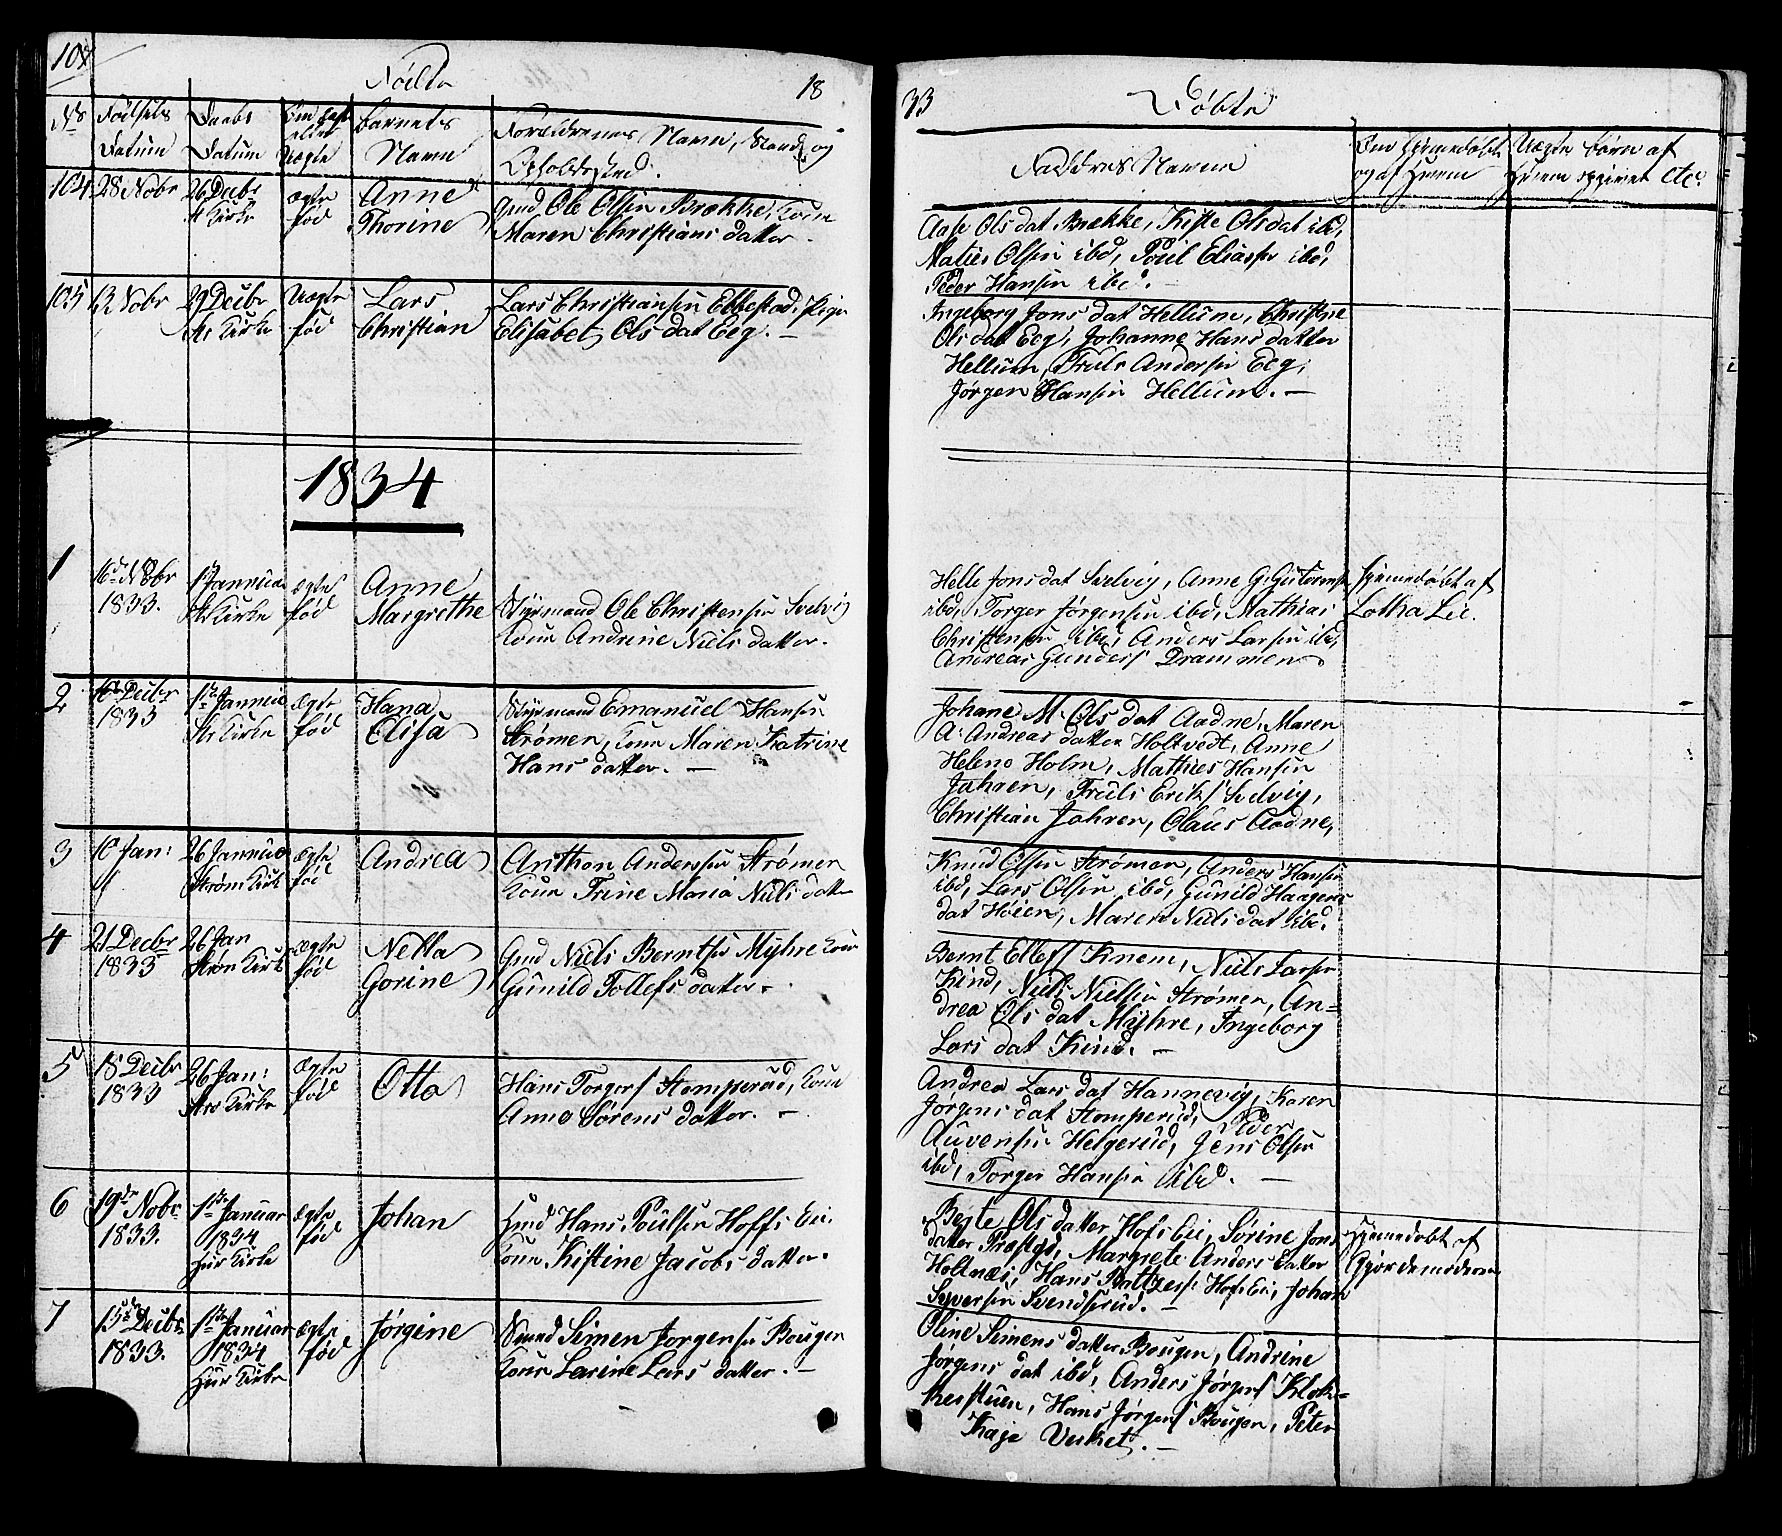 108
Födte
18
No
Födsels
Datum
Daabs
Datum
Om ægte
eller
Uægte
Barnets
Navn
Forældrenes Navn, Stand og
Opholdssted.
104
28 Nobr
26 Decbr
St Kirke
ægte
fød
Anne
Thorine
Gmd Ole Olsen Brække, Konn
Maren Christians datter.
105
12 Nobr
29 Decbr
Strs Kirke
Uægte
fød
Lars
Christian
Lars Christiansen Ebbestad, Pige
Elisabet Ols dat Eeg. —
1834
1
16de Nobr
1833.
1ste Januar
St Kirke
ægte
fød
Anne
Margrethe
Styrmand Ole Christensen Svelvig
Konn Andrine Niels datter.
2
16de Decbr
1833
1ste Januar
Strs Kirke
ægte
fød
Hana
Elisa
Styrmand Emanuel Hansen
Strømen, Konn Maren Katrine
Hans datter. —
3
10 Jan:
26 Januar
Strøm Kirk
ægte
fød
Andrea
Anthon Andersen Strømen
Konn Trine Maria Niels datter
4
21 Decbr
1833
26 Jan
Strøm Kirk
ægte
fød
Nella
Gorine
Gmd Niels Berntsen Myhre Kone
Gunild Tollefs datter.
5
18 Decbr
1833
26 Jan:
Strs Kirke
ægte
fød
Otto
Hans Torgers Stomperud, Konn
Anne Sørens datter. —
6
19de Nobr
1833.
1ste Januar
1834
Hur Kirke
ægte
fød
Johan
Hmd Hans Poulsen Hoffs Eie
Konn Kistine Jacobs datter.
7
15de Decbr
1833.
1ste Januar
1834
Hur Kirke
ægte
fød
Jørgine
Simen Jorgensen Bougen
Konn Larine Lars datter. —
33
Döbte
Faddernes Navne
Om Hjemmedøbt
og af hvem
Uægte børn af
hvem opgivet etc.
Aase Ols dat Brække, Kiste Ols dat ibd,
Maties Olsen ibd, Poul Eliasen ibd,
Peder Hansen ibd. —
Ingeborg Jons dat Hellum, Christine
Ols dat Eeg, Johanne Hans datter
Hellum, Truls Andersen Eeg,
Jørgen Hansen Hellum. —
Helle Jons dat Svelvig, Anne G. Gutorms
ibd, Torger Jørgensen ibd, Mathias
Christensen ibd, Anders Larsen ibd,
Andreas Gunders Drammen
Hjemmedøbt af
Lotha Lie.
Johane M. Ols dat Aadne, Maren
A. Andreas datter Holtvedt, Anne
Helene Holm, Mathies Hansen
Jahren, Truls Eriks Svelvig,
Christian Jahren, Olaus Aadne,
Knud Olsen Strømen, Anders Hansen
ibd, Lars Olsen ibd, Gunild Haagens
dat Høien, Maren Niels dat ibd.
Bernt Ellefs Knem, Niels Larsen
Kind, Niels Nielsen Strømen, An=
drea Ols dat Myhre, Ingeborg
Lars dat Kind. —
Andrea Lars dat Hannevig, Karen
Jørgens dat Stomperud, Peder
Auvensen Helgerud, Jens Olsen
ibd, Torger Hansen ibd. —
Berte Ols datter Hofs Eie, Sørine Jons
datter Præstgd, Margrete Anders datter
Holtnæs, Hans Baltzers Hofs Eie, Johan
Syversen Svendsrud. —
Hjemmedøbt af
Gjordemoderen
Oline Simens datter Bougen, Andrine
Jørgens dat ibd, Anders Jørgens Klok=
kerstuen, Hans Jørgens Bougen, Peter
Kaje Verket. —